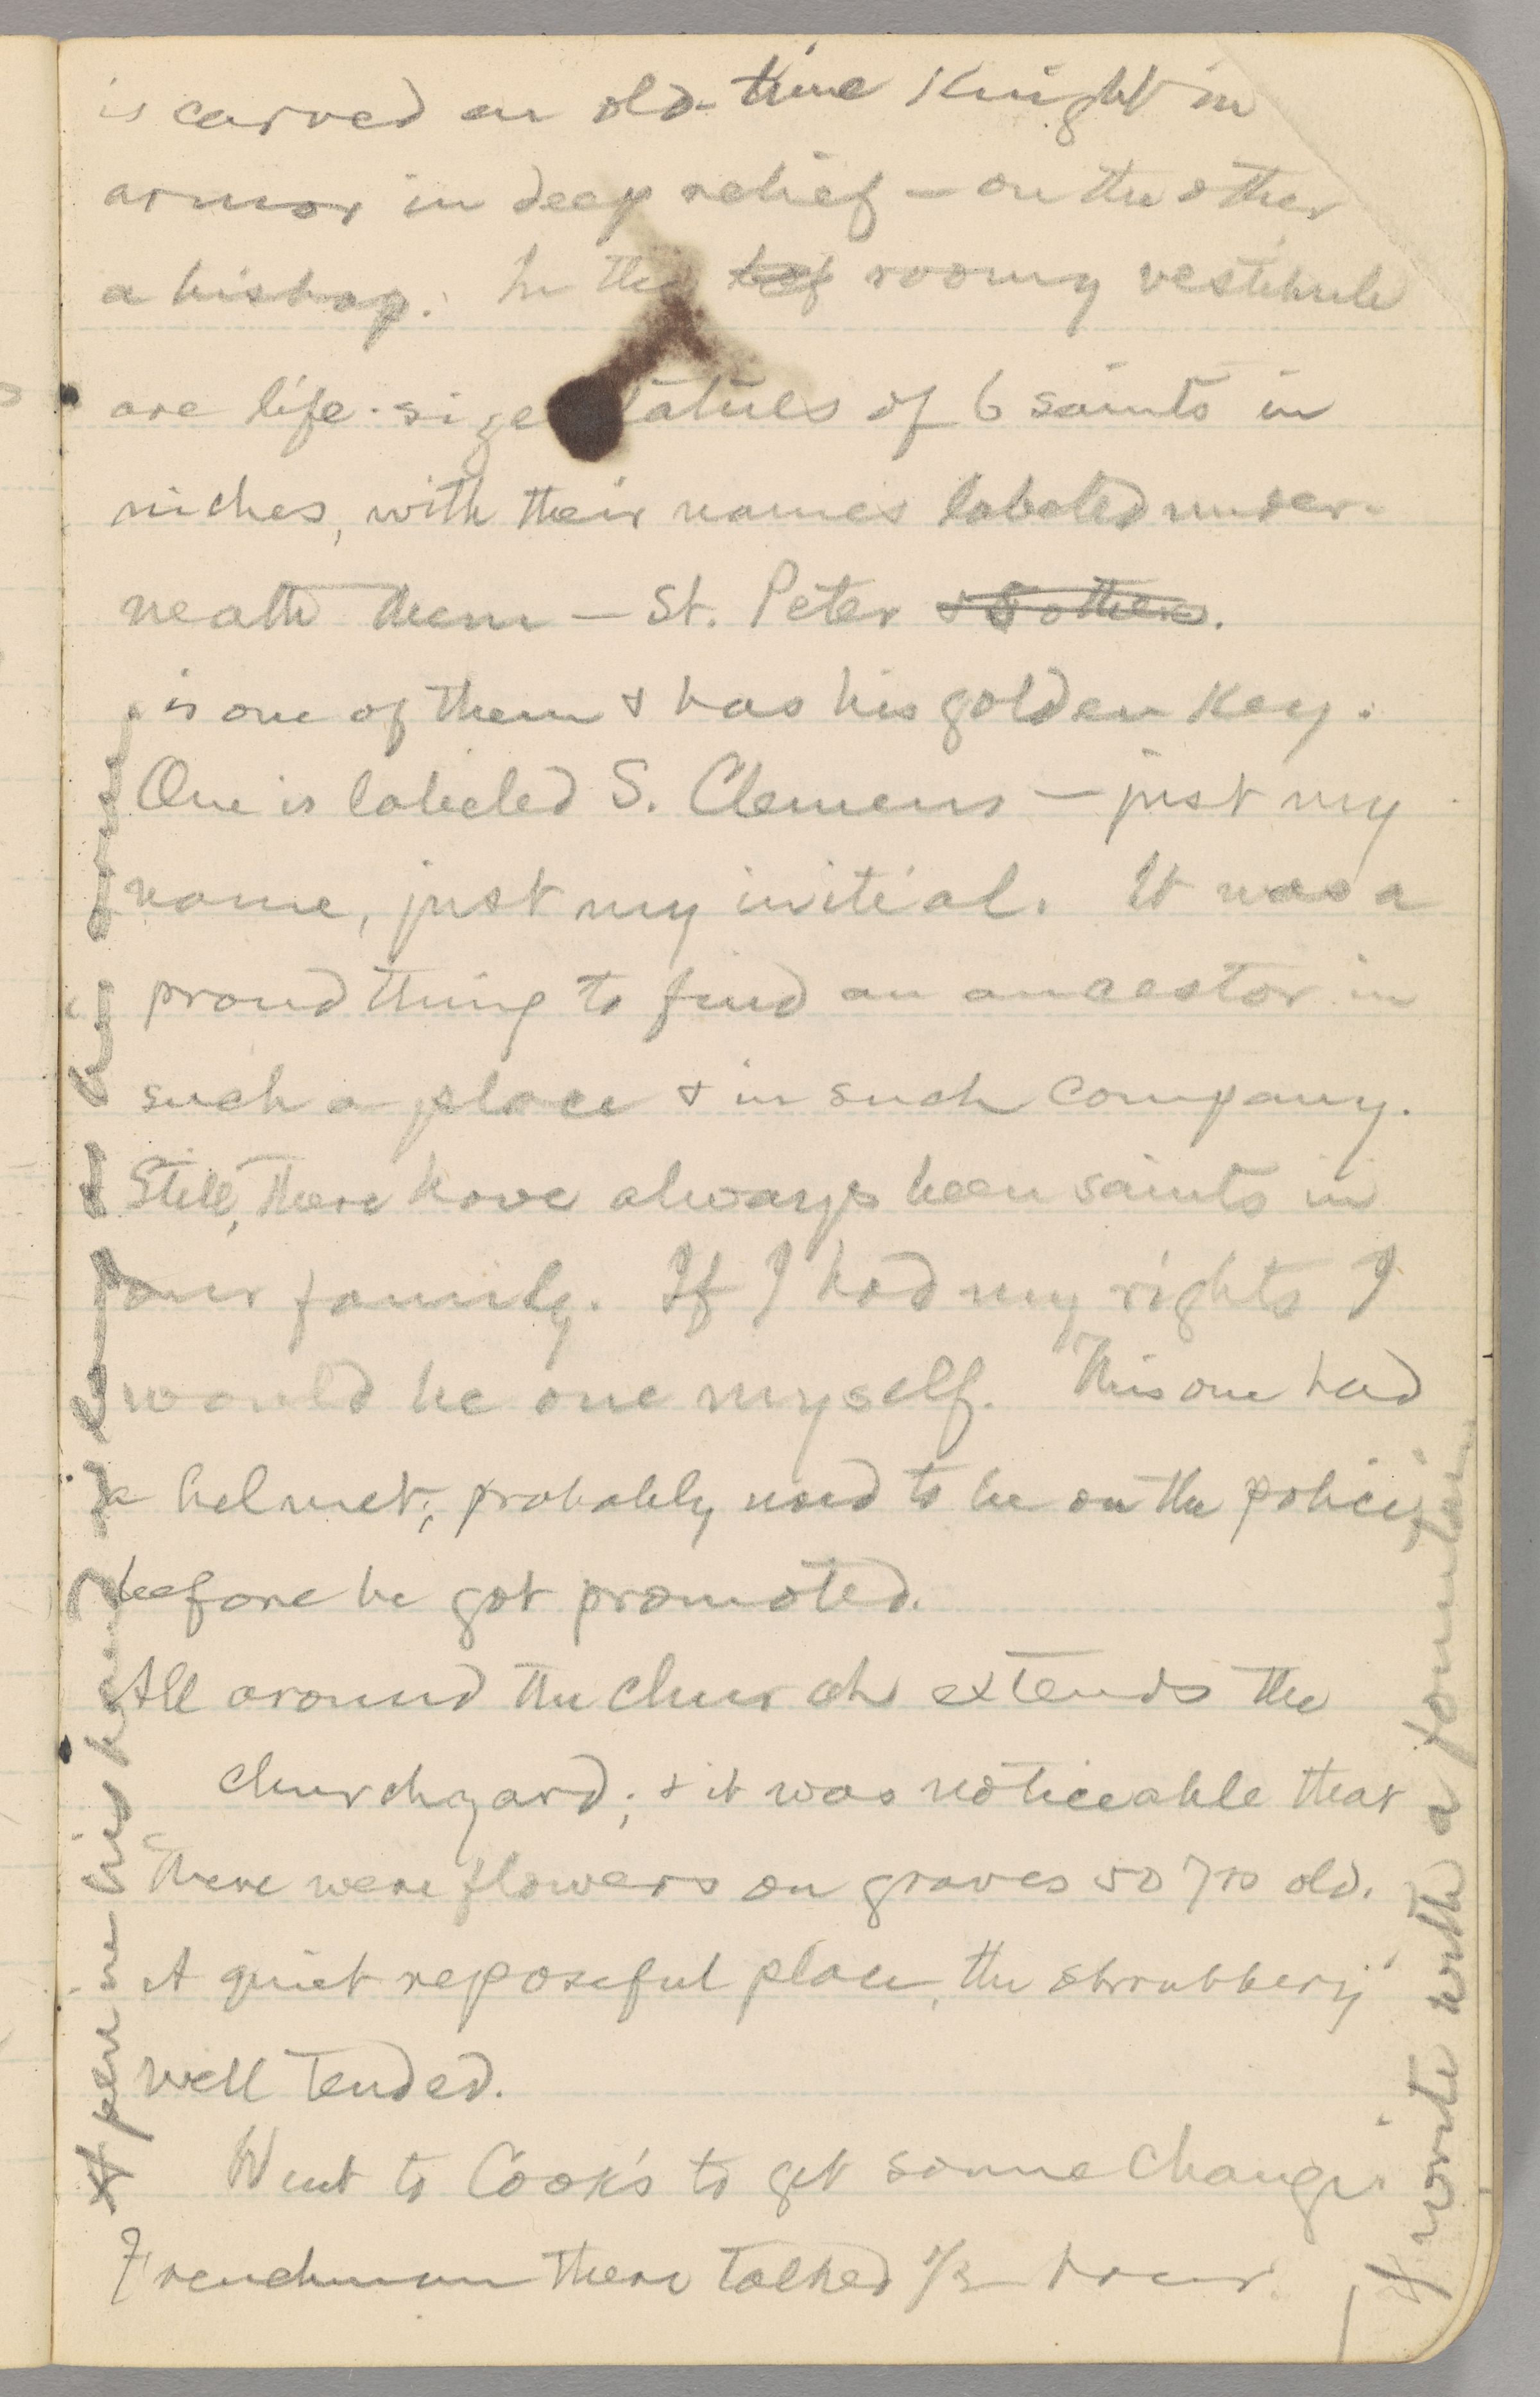 is carved an old-time Knight in
armor in deep relief — on the other
a bishop. In the roomy vestibule
are life-size statues of 6 saints in
niches, with their names labeled under-
neath them — St. Peter & 5 others.
is one of them & has his golden key.
One is labeled S. Clemens — just my
name, just my initial. It was a
proud thing to find an ancestor in
such a place & in such company.
Still, there have always been saints in
our family. If I had my rights I
would be one myself. This one had
a helmet; probably used to be on the police,
before he got promoted.
All around the church extends the
churchyard; & it was noticeable that
there were flowers on graves 50 yrs old.
A quiet reposeful place, the shrubbery
well tended.
Went to Cook's to get some change.
Frenchman there talked 1/2 hour.
pen in his hand &
write with a fountain